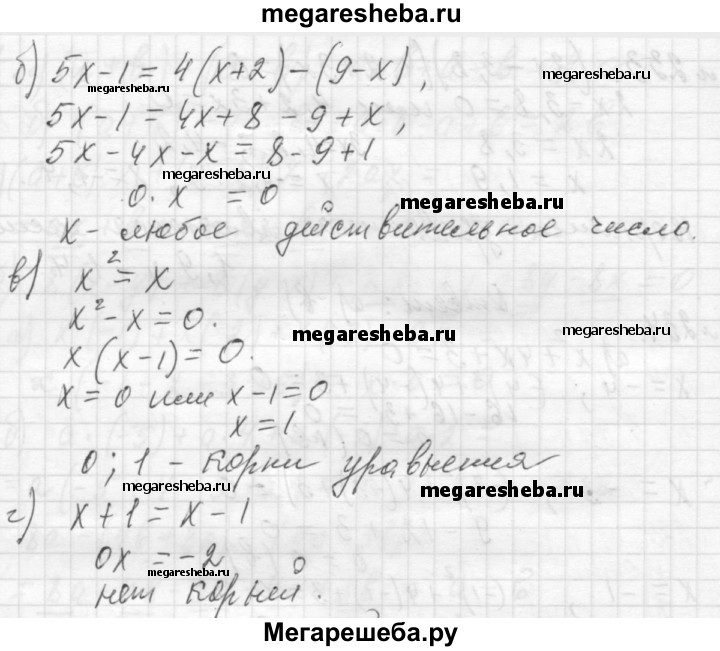 megaresheba.ru
б) 5x-1=4(x+2)-(9-x),
megaresheba.ru
megaresheba.ru
5x-1=4x+8-9+x,
5x-4x-x=8-9+1
megaresheba.ru
0·x=0
megaresheba.ru
x-любое действительное число.
в) x²=x
x²-x=0.
megaresheba.ru
megaresheba.ru
x(x-1)=0.
x=0 или x-1=0
x=1
0; 1 - корни уравнения
megaresheba.ru
megaresheba.ru
г) x+1=x-1
0x=-2
megaresheba.ru
нет корней.
Мегарешеба.ру